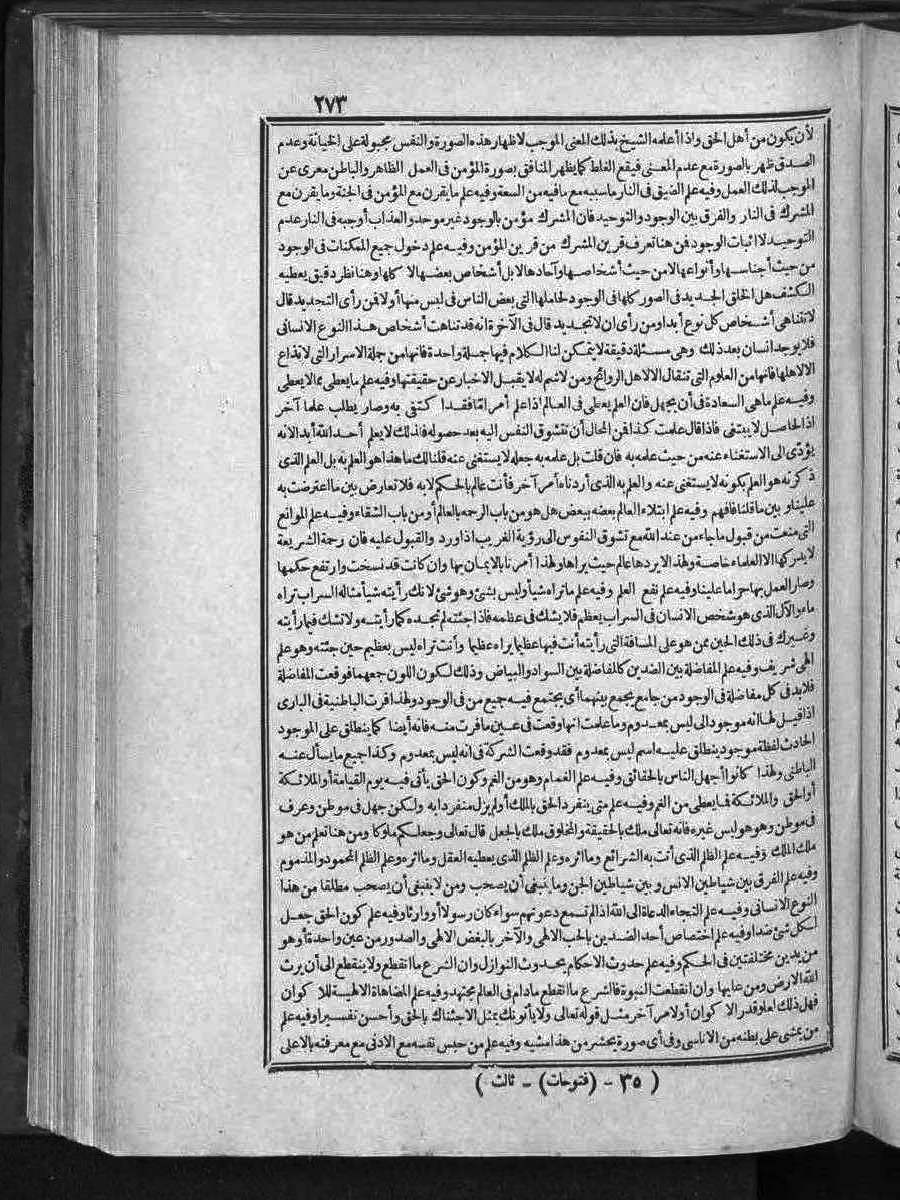 ٢٧٣
لأن يكون من أهل الحق واذا أعلمه الشيخ بذلك المعنى الموجب لاظهار هذه الصورة والنفس مجبولة على الخيانة وعدم
الصدق ظهر بالصورة مع عدم المعنى فيقع الغلط كما يظهر المنافق بصورة المؤمن فى العمل الظاهر والباطن معرى عن
الموجب لذلك العمل وفيه علم الضيق فى النار ماسببه مع مافيه من السعة وفيه علم مايقرن مع المؤمن فى الجنة وما يقرن مع
المشرك فى النار والفرق بين الوجود والتوحيد فان المشرك مؤمن بالوجود غير موحد والعذاب أوجبه فى النار عدم
التوحيد لا اثبات الوجود فمن هنا تعرف قرين المشرك من قرين المؤمن وفيه علم دخول جميع الممكنات فى الوجود
من حيث أجناسها وأنواعها لا من حيث أشخاصها وآحادها لا بل أشخاص بعضها لا كلها وهنا نظر دقيق يعطيه
الكشف هل الخلق الجديد فى الصور كلها فى الوجود لحاملها التى بعض الناس فى لبس منها أولا فمن رأى التجديد قال
لا تتناهى أشخاص كل نوع أبدا ومن رأى ان لا تجديد قال فى الآخرة انه قد تناهت أشخاص هذا النوع الانسانى
فلا يوجد انسان بعد ذلك وهى مسئلة دقيقة لا يتمكن لنا الكلام فيها جملة واحدة فانها من جملة الاسرار التى لا تذاع
الا لاهلها فانها من العلوم التى تنقال الا لاهل الروائح ومن لا شم له لا يقبل الاخبار عن حقيقتها وفيه علم ما يعطى مما لا يعطى
وفيه علم ماهى السعادة فى أن يجهل فان العلم يعطى فى العالم اذا علم أمر امّا فقدا كتفى به وصار يطلب علما آخر
اذ الحاصل لا يبتغى فاذا قال علمت كذا فمن المحال أن تتشوق النفس اليه بعد حصوله فلذلك لا يعلم أحد الله أبدا لانه
يؤدّى الى الاستغناء عنه من حيث علمه به فان قلت بل علمه به جعله لا يستغنى عنه قلنا لك ما هذا هو العلم به بل العلم الذى
ذكرته هو العلم بكونه لا يستغنى عنه والعلم به الذى أردناه أمر آخر فأنت عالم بالحكم لا به فلا تعارض بين ما اعترضت به
علينا وبين ماقلنا فافهم وفيه علم ابتلاء العالم بعضه ببعض هل هو من باب الرحمه بالعالم أومن باب الشقاء وفيه علم الموانع
التى منعت من قبول ماجاء من عند الله مع تشوق النفوس الى رؤية الغريب اذا ورد والقبول عليه فان رحمة الشريعة
لا يدركها الا العلماء خاصة ولهذا لا يردها عالم حيث يراها ولهذا أمرنا بالايمان بها وان كانت قد نسخت وارتفع حكمها
وصار العمل بها حراما علينا وفيه علم نفع العلم وفيه علم ماتراه شيأ وليس بشئ وهو شئ لانك رأيته شيأ مثاله السراب تراه
ماء والآل الذى هو شخص الانسان فى السراب يعظم فلا يشك فى عظمه فاذا جئته لم تجده كما رأيته ولا تشك فيما رأيته
وغيرك فى ذلك الحين ممن هو على المسافة التى رأيته أنت فيها عظيما يراه عظيما وأنت تراه ليس بعظيم حين جئته وهو علم
الهى شريف وفيه علم المفاضلة بين الضدين كالمفاضلة بين السواد والبياض وذلك لكون اللون جمعهما فوقعت المفاضلة
فلابد فى كل مفاضلة فى الوجود من جامع يجمع بينهما أى يجتمع فيه جميع من فى الوجود ولهذا فرت الباطنية فى البارى
اذا قيل لها انه موجود الى ليس بمعدوم وما علمت انها وقعت فى عين مافرت منه فانه أيضا كما ينطلق على الموجود
الحادث لفظة موجود ينطلق عليه اسم ليس بمعدوم فقد وقعت الشركة فى انه ليس بمعدوم وكذا جميع ما يسأل عنه
الباطنى ولهذا كانوا أجهل الناس بالحقائق وفيه علم الغمام وهو من الغم وكون الحق يأتى فيه يوم القيامة أو الملائكة
أو الحق والملائكة فما يعطى من الغم وفيه علم متى ينفرد الحق بالملك أولم يزل منفردا به ولكن جهل فى موطن وعرف
فى موطن وهو هو ليس غيره فانه تعالى ملك بالحقيقة والمخلوق ملك بالجعل قال تعالى وجعلكم ملوكا ومن هنا تعلم من هو
ملك الملك وفيه علم الظلم الذى أتت به الشرائع وما اثره وعلم الظلم الذى يعطيه العقل وما اثره وعلم الظلم المحمود والمذموم
وفيه علم الفرق بين شياطين الانس وبين شياطين الجن وما ينبغى أن يصحب ومن لا ينبغى أن يصحب مطلقا من هذا
النوع الانسانى وفيه علم التجاء الدعاة الى الله اذا لم تسمع دعوتهم سواء كان رسولا أو وارثا وفيه علم كون الحق جعل
لكل شئ ضدا وفيه علم اختصاص أحد الضدين بالحب الالهى والآخر بالبغض الالهى والصدور من عين واحدة أوهو
من يدين مختلفتين فى الحكم وفيه علم حدوث الاحكام بحدوث النوازل وان الشرع ما انقطع ولا ينقطع الى أن يرث
الله الارض ومن عليها وان انقطعت النبوة فالشرع ما انقطع مادام فى العالم مجتهد وفيه علم المضاهاة الالهية للا كوان
فهل ذلك لعلو قدر الا كوان أولامر آخر مثل قوله تعالى ولا يأتونك بمثل الا جئناك بالحق وأحسن تفسيرا وفيه علم
من يمشى على بطنه من الاناسى وفى أى صورة يحشر من هذا مشيه وفيه علم من حبس نفسه مع الادنى مع معرفته بالاعلى
( ٣٥ - (فتوحات) - ثالث )